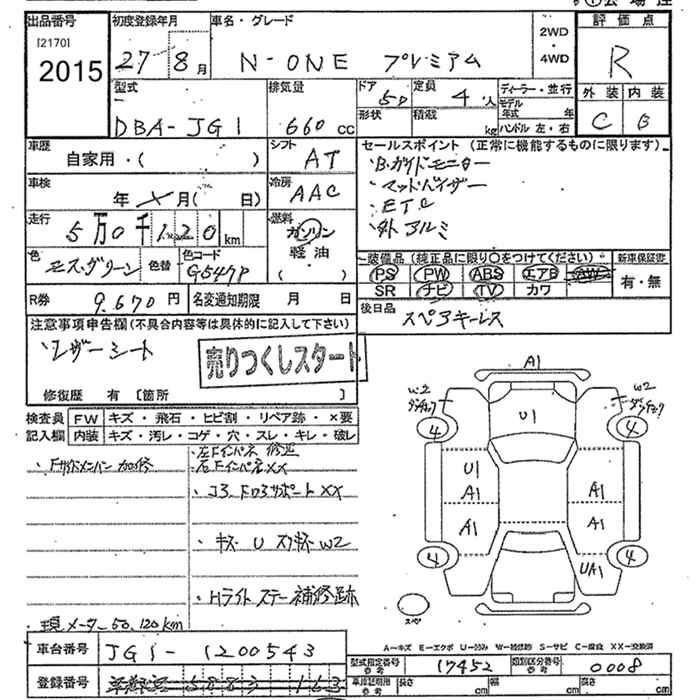 出品番号
[2170]
2015
初度登録年月
27 8月
車名・グレード
N-ONE プレミアム
2WD
・
4WD
評価点
R
外装 内装
C B
型式
DBA-JG1
排気量
660 cc
ドア
5D
定員
4人
形状
積載
kg
ディーラー・並行
モデル年式 年
ハンドル 左・右
車歴
自家用・( )
シフト
AT
セールスポイント (正常に機能するものに限ります)
・B.ガイドモニター
・マットバイザー
・ETC
・外アルミ
車検
年 月( 日)
冷房
AAC
走行
5万0千120km
燃料
ガソリン
軽油
( )
色
モス.グリーン
色替
色コード
G547P
装備品 (純正品に限り○をつけてください)
PS PW ABS エアB AW
SR ナビ TV カワ
新車保証書
有・無
R券
9.670円
名変通知期限 月 日
後日品
スペアキーレス
注意事項申告欄(不具合内容等は具体的に記入して下さい)
・レザーシート
売りつくしスタート
修復歴 有 [箇所 ]
検査員記入欄
FW キズ・飛石・ヒビ割・リペア跡・×要
内装 キズ・汚レ・コゲ・穴・スレ・キレ・破レ
・左Fインパネ修正
・Fサイドメンバー加修
・右FインパネXX
・コアサポートXX
・キズ U スリキズ W2
・Hライトステー補修跡
・現メーター50,120km
A1
W2
W2
U1
4
4
U1
A1
A1
A1
A1
4
4
UA1
スペ
A-キズ E-エクボ U-凹み W-補修跡 S-サビ C-腐食 XX-交換済
車台番号
JG1-1200543
型式指定番号
参考
17452
類別区分番号
参考
0008
登録番号
車庫証明用
参考
長さ cm
幅 cm
高さ cm